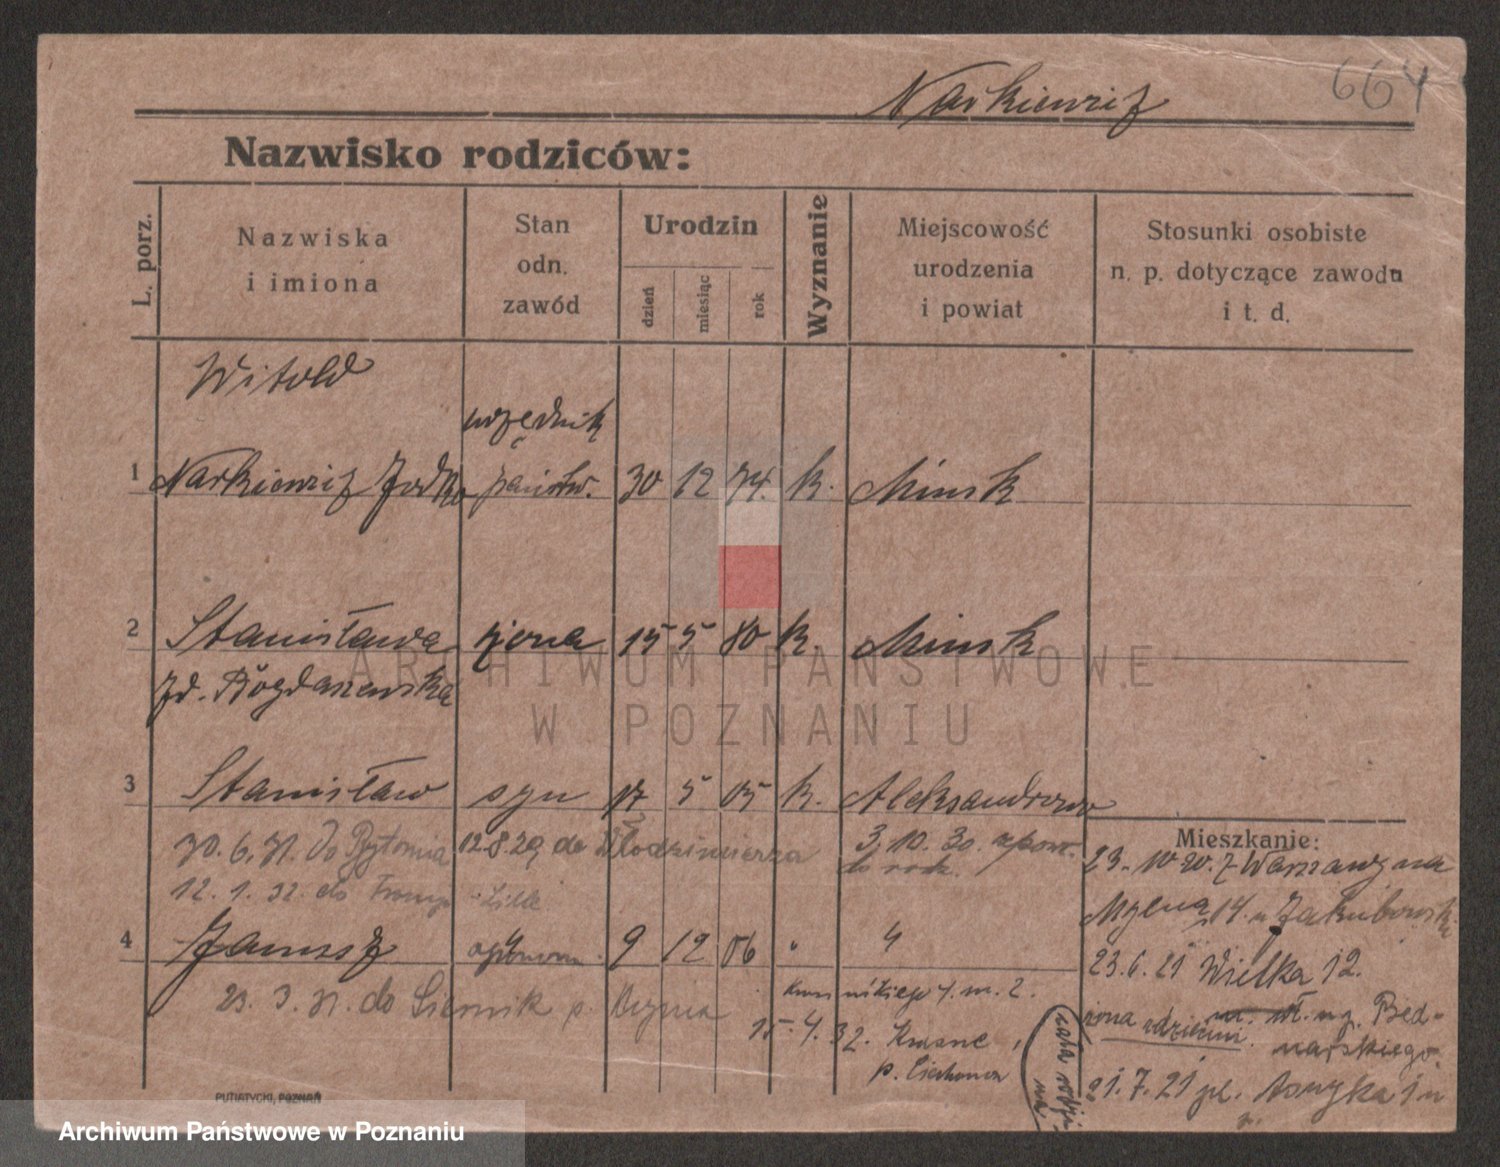 664
Narkiewicz
Nazwisko rodziców:
L. porz.
Nazwiska
i imiona
Stan
odn.
zawód
Urodzin
dzień
miesiąc
rok
Wyznanie
Miejscowość
urodzenia
i powiat
Stosunki osobiste
n. p. dotyczące zawodu
i t. d.
Witold
urzędnik
1 Narkiewicz Jodko państw. 30 12 74. k. Minsk
2 Stanisława żona 15 5 80 k. Minsk
zd. Bogdaszewska
3 Stanisław syn 17 5 05 k. Aleksandrowo
30.6.31. do Bytomia 12.8.29 do Włodzimierza 3.10.30. z pow.
12.1.32. do
do rodz.
4 Janusz 9 12 06 " "
23.3.31. do
Mieszkanie:
23.10.20. z Warszawy na
Mylna 14. u Jakubowsk.
23.6.21 Wielka 12.
żona z dziećmi
na. wł. ng. Bed-
narskiego
21.7.21 pl. Asnyka 1
15.4.32.
p.
cała rodzi-
na
PUTIATYCKI, POZNAŃ
ARCHIWUM PAŃSTWOWE
W POZNANIU
Archiwum Państwowe w Poznaniu